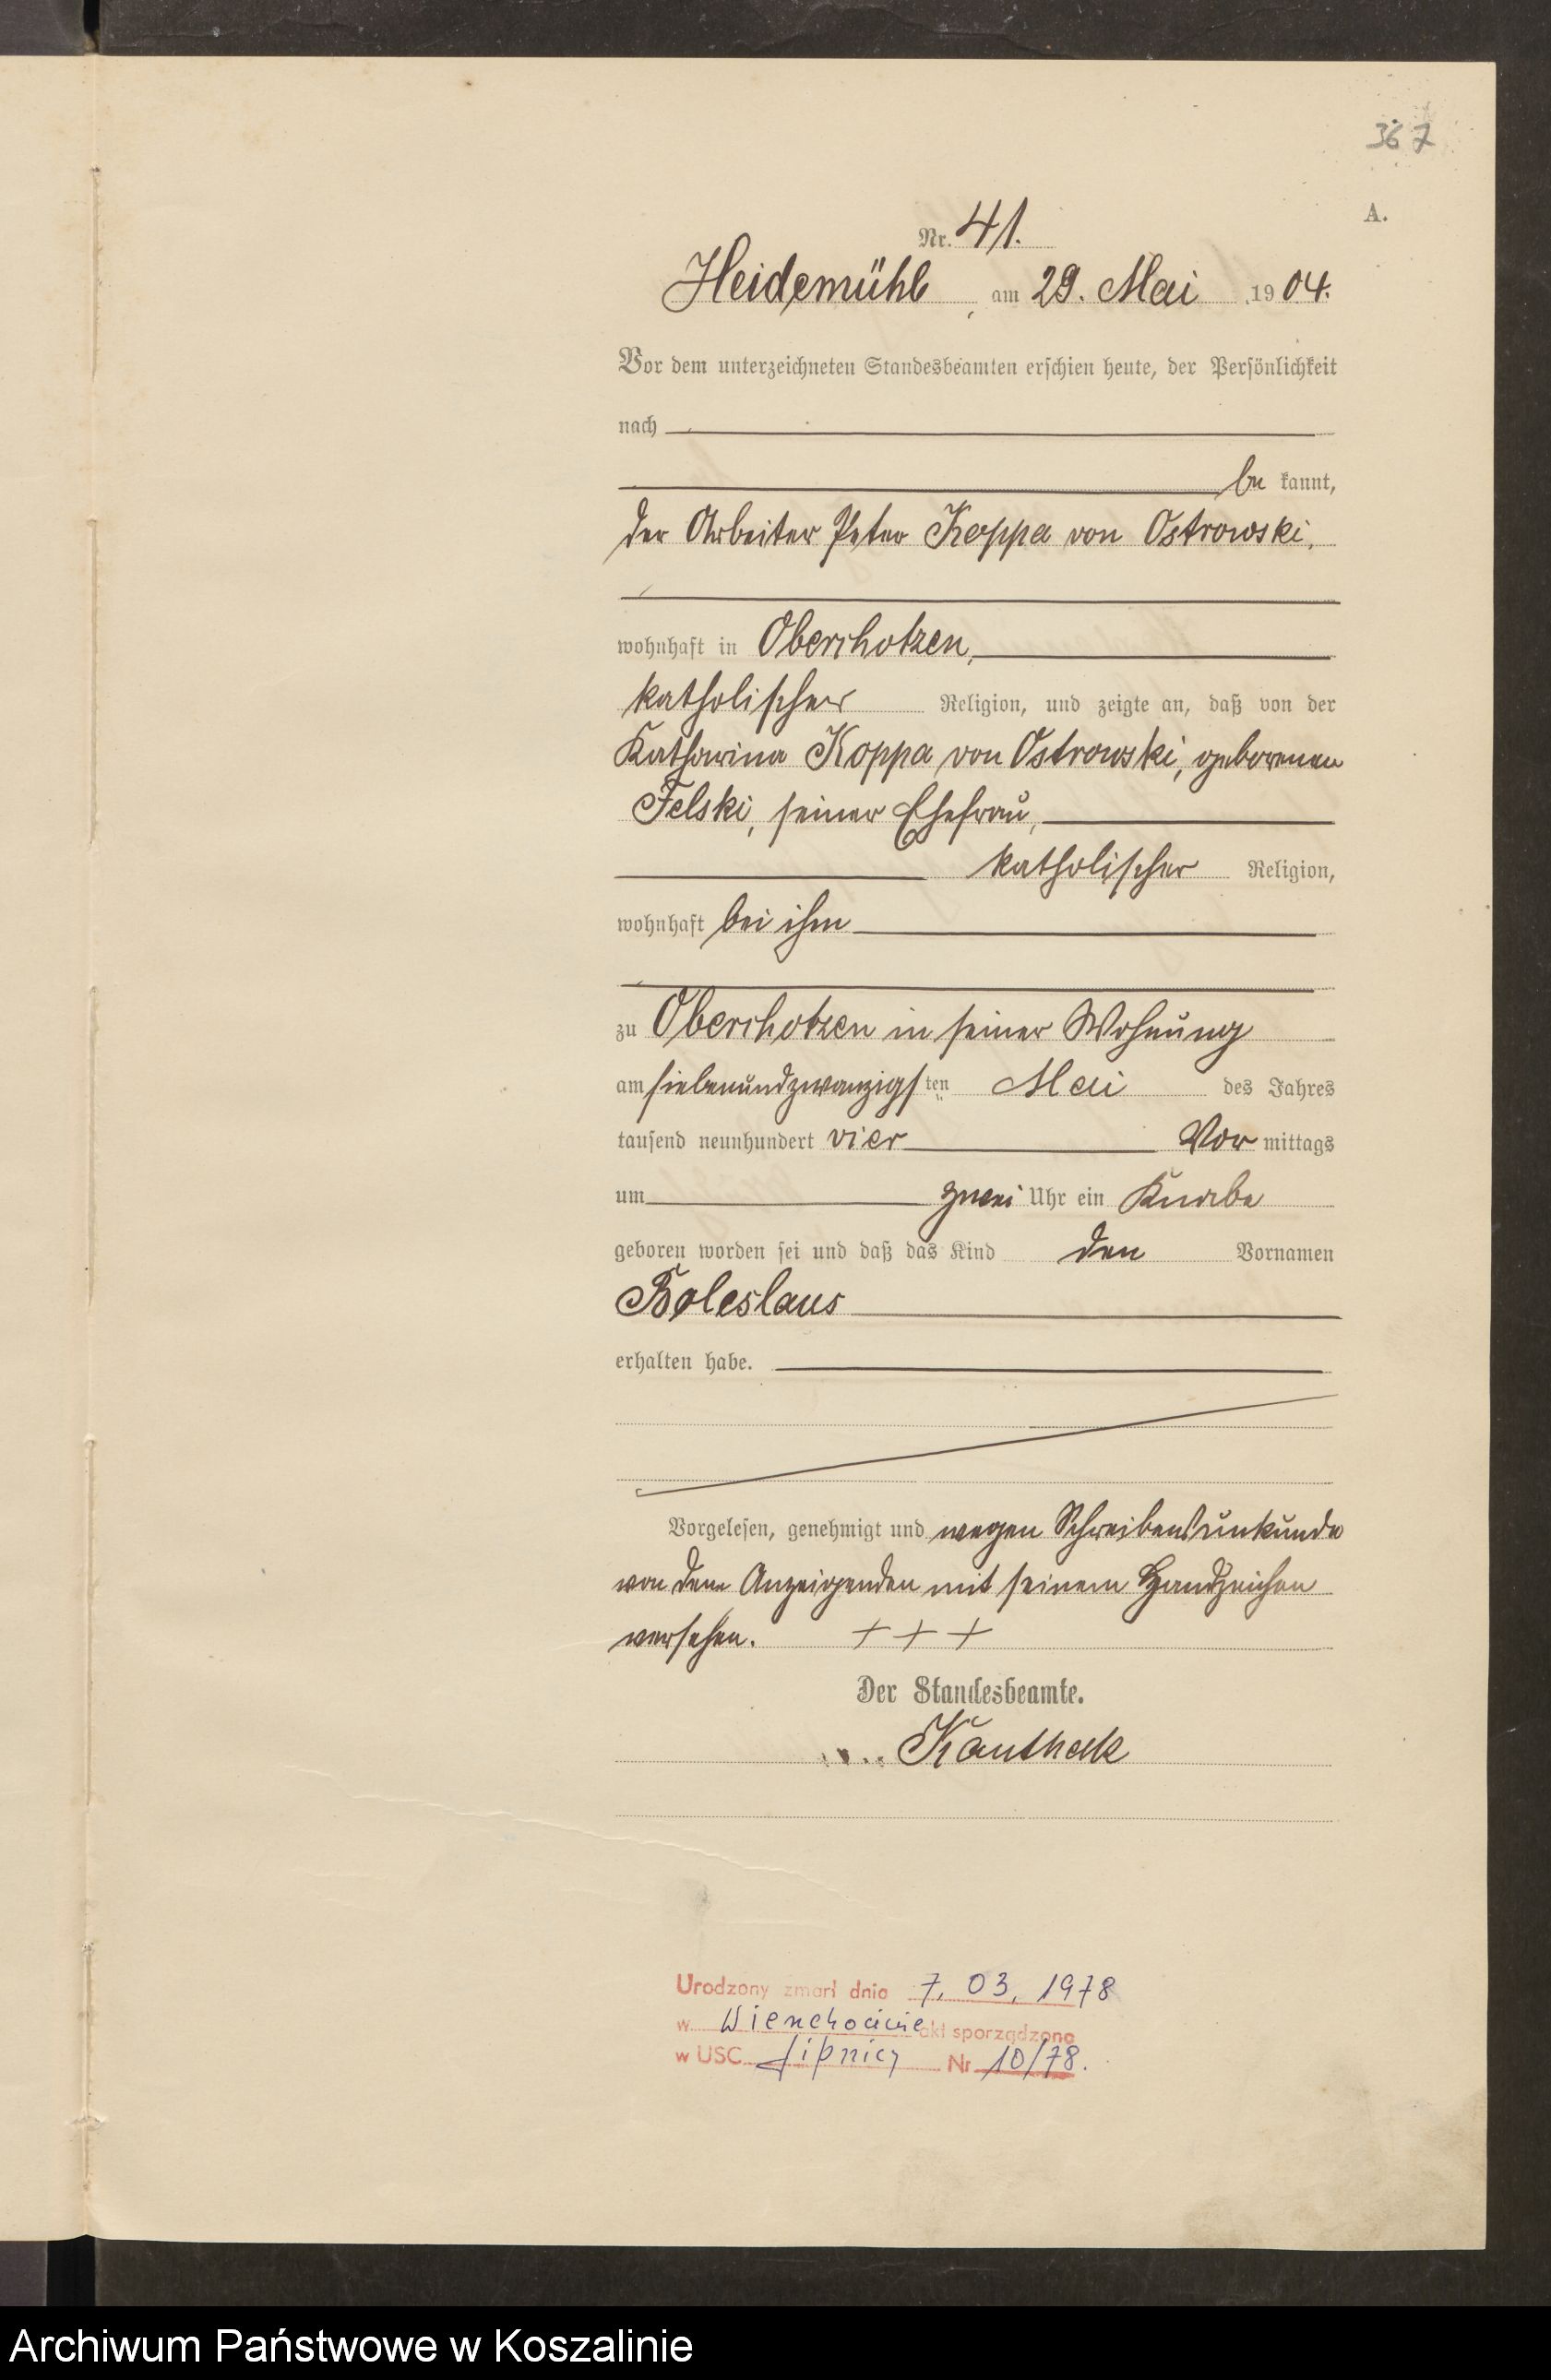 367
A.
Nr. 41.
Heidemühl, am 29. Mai 1904.
Vor dem unterzeichneten Standesbeamten erschien heute, der Persönlichkeit
nach
be kannt,
der Arbeiter Peter Koppa von Ostrowski,
wohnhaft in Oberchotzen,
katholischer Religion, und zeigte an, daß von der
Katharina Koppa von Ostrowski, geborenen
Felski, seiner Ehefrau,
katholischer Religion,
wohnhaft bei ihm
zu Oberchotzen in seiner Wohnung
am siebenundzwanzigsten Mai des Jahres
tausend neunhundert vier Vor mittags
um zwei Uhr ein Knabe
geboren worden sei und daß das Kind den Vornamen
Boleslaus
erhalten habe.
Vorgelesen, genehmigt und wegen Schreibensunkunde
von dem Anzeigenden mit seinem Handzeichen
versehen. + + +
Der Standesbeamte.
Kanthak
Urodzony zmarł dnia 7. 03. 1978
w akt sporządzono
w USC Lipnicy Nr 10/78.
Archiwum Państwowe w Koszalinie